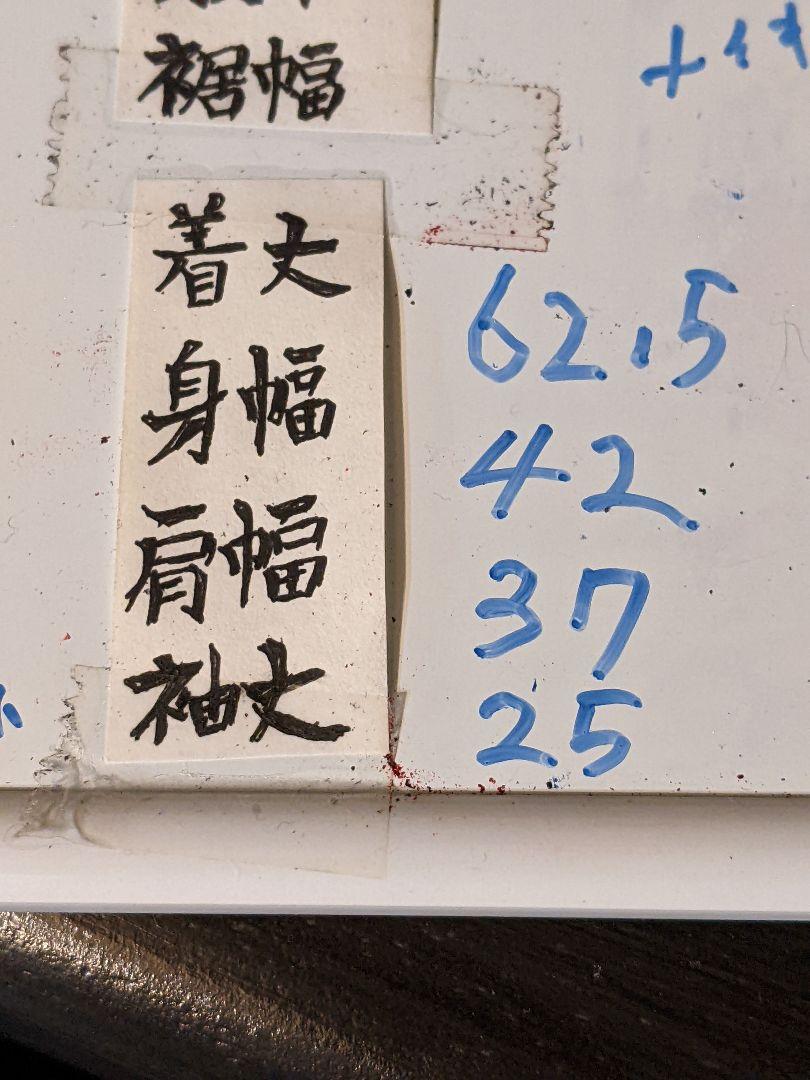 裾幅
着丈 62.5
身幅 42
肩幅 37
袖丈 25